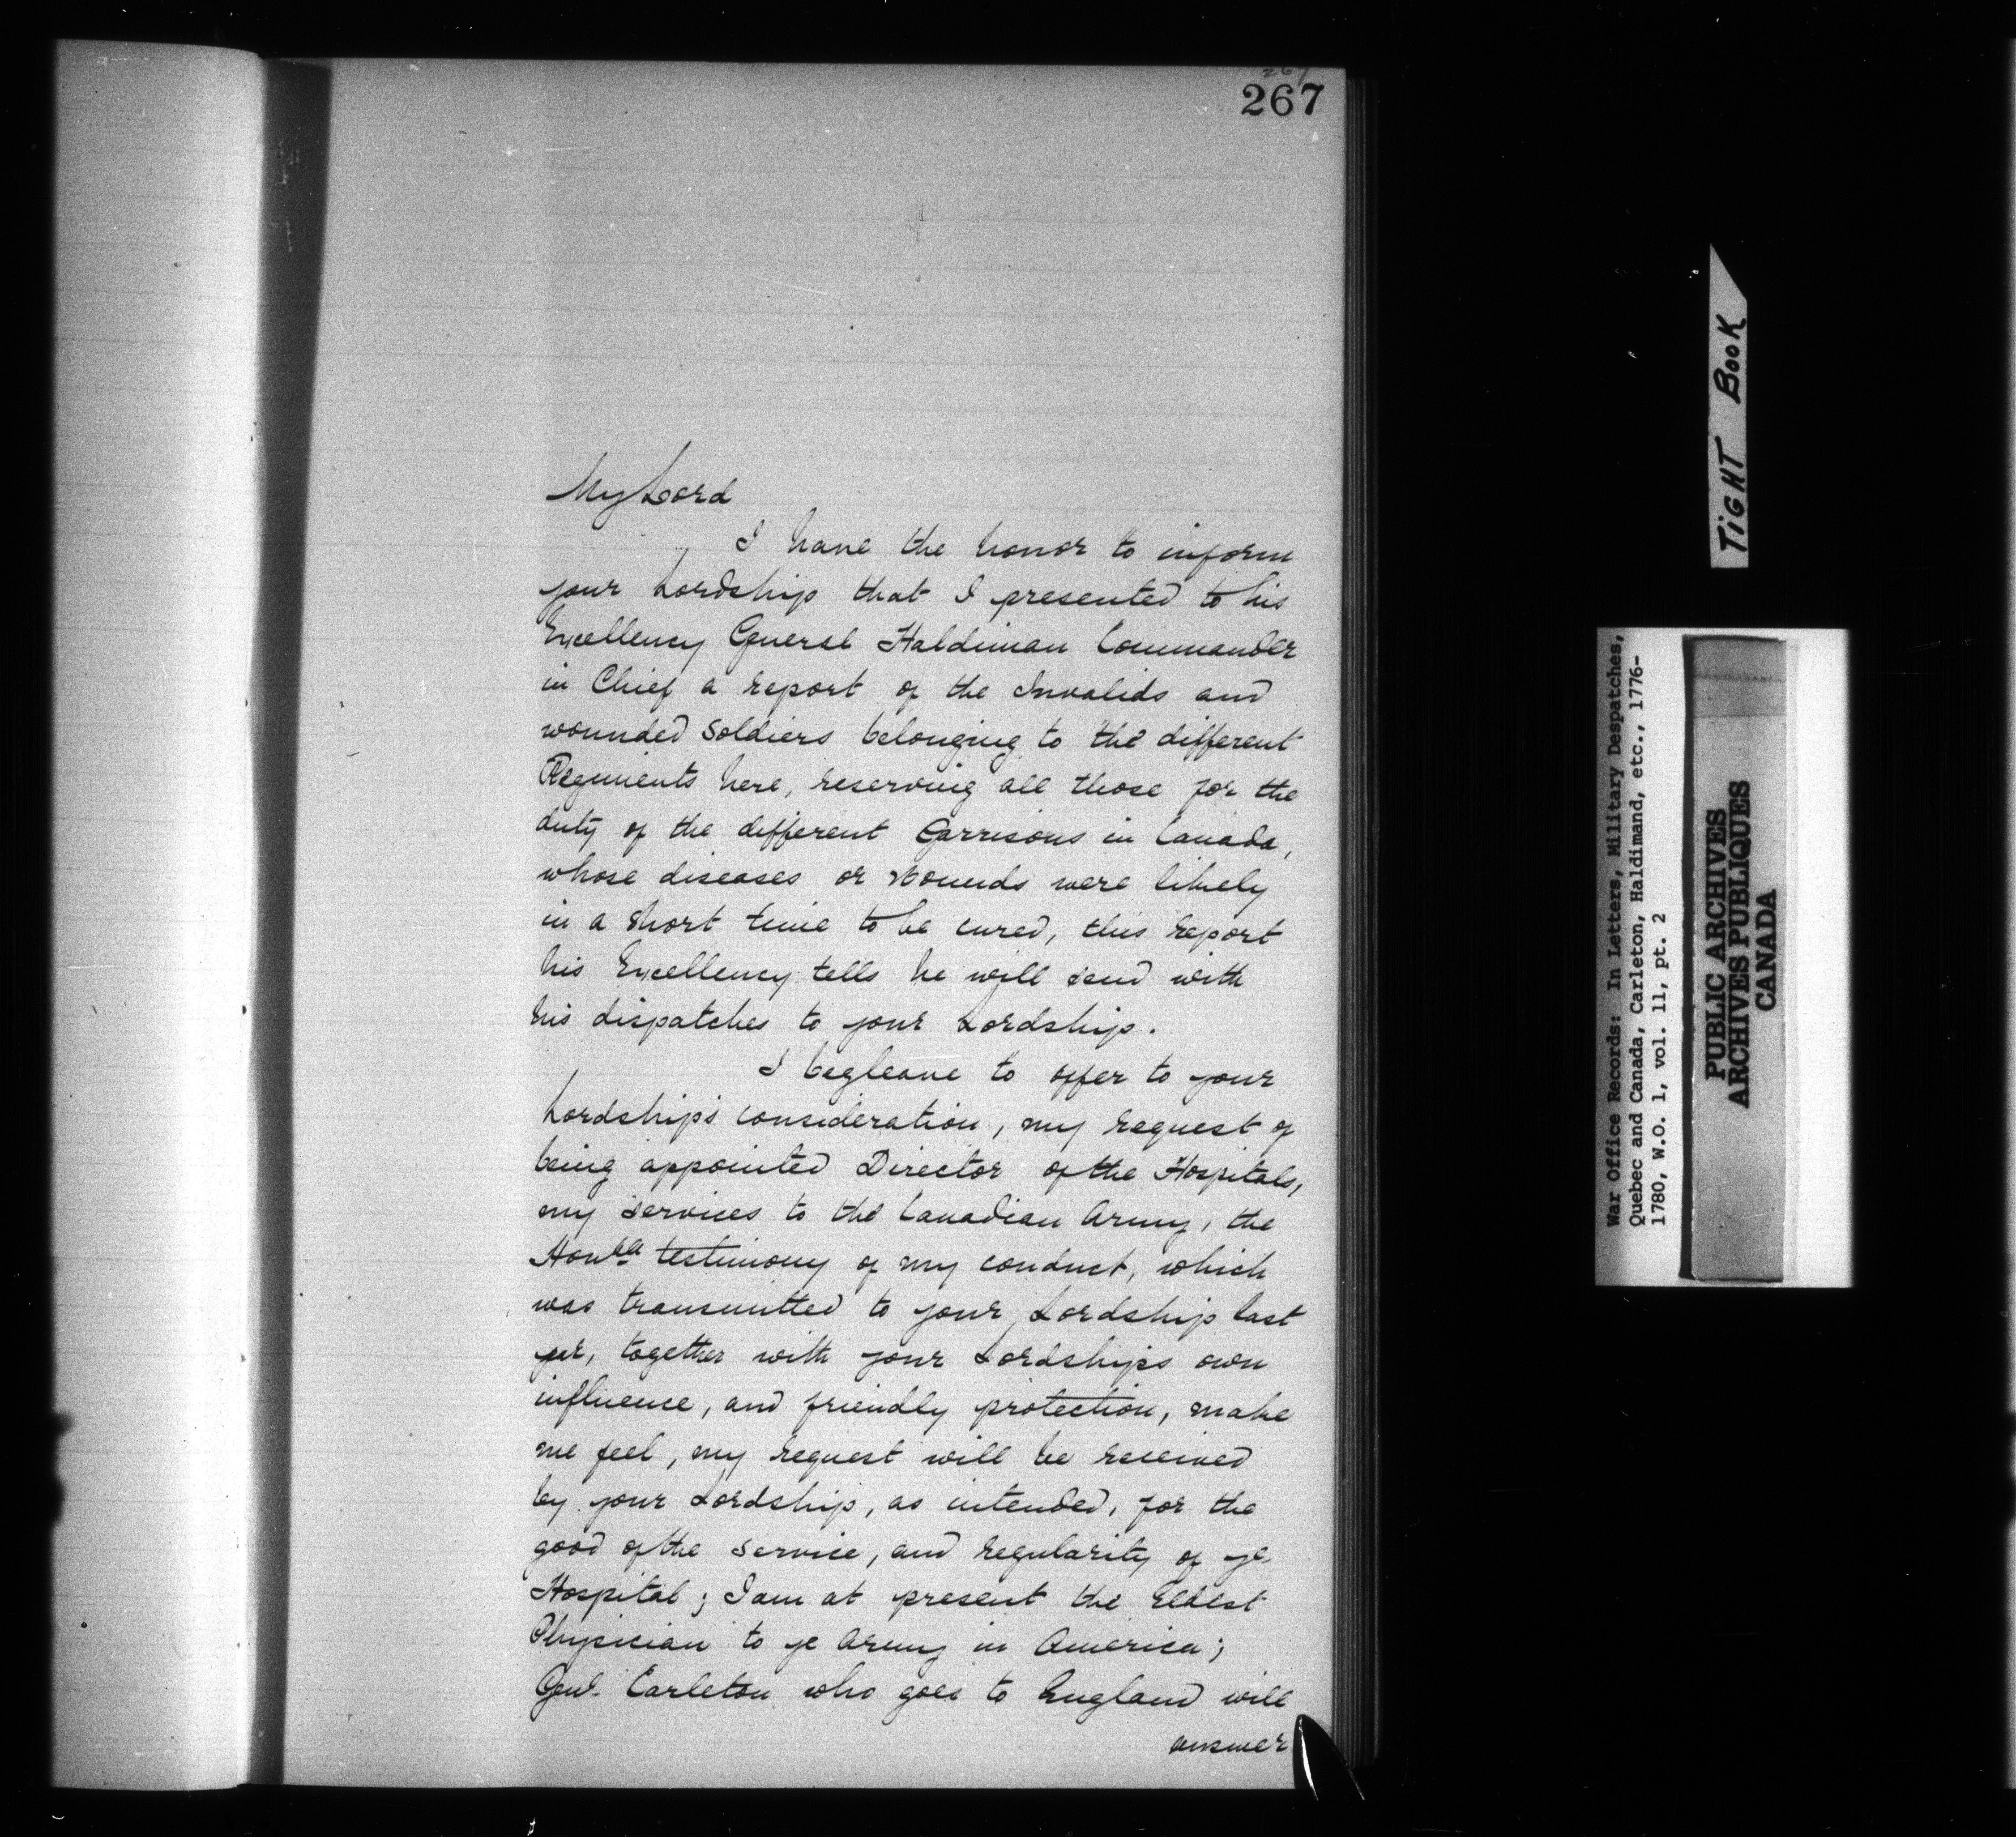 267
267
My Lord
I have the honor to inform
your Lordship that I presented to his
Excellency General Haldiman Commander
in Chief a report of the Invalids and
wounded Soldiers belonging to the different
Regiments here, reserving all those for the
duty of the different Garrisons in Canada,
whose diseases or wounds were likely
in a short time to be cured, this report
his Excellency tells he will send with
his dispatches to your Lordship.
I beg leave to offer to your
Lordship's consideration, my request of
being appointed Director of the Hospitals,
my services to the Canadian Army, the
Honble testimony of my conduct, which
was transmitted to your Lordship last
yer, together with your Lordships own
influence, and friendly protection, make
me feel, my request will be received
by your Lordship, as intended, for the
good of the service, and regularity of ye
Hospital; I am at present the Eldest
Physician to ye Army in America;
Genl. Carleton who goes to England will
answer
TIGHT BOOK
War Office Records: In Letters, Military Despatches,
Quebec and Canada, Carleton, Haldimand, etc., 1776-
1780, W.O. 1, vol. 11, pt. 2
PUBLIC ARCHIVES
ARCHIVES PUBLIQUES
CANADA